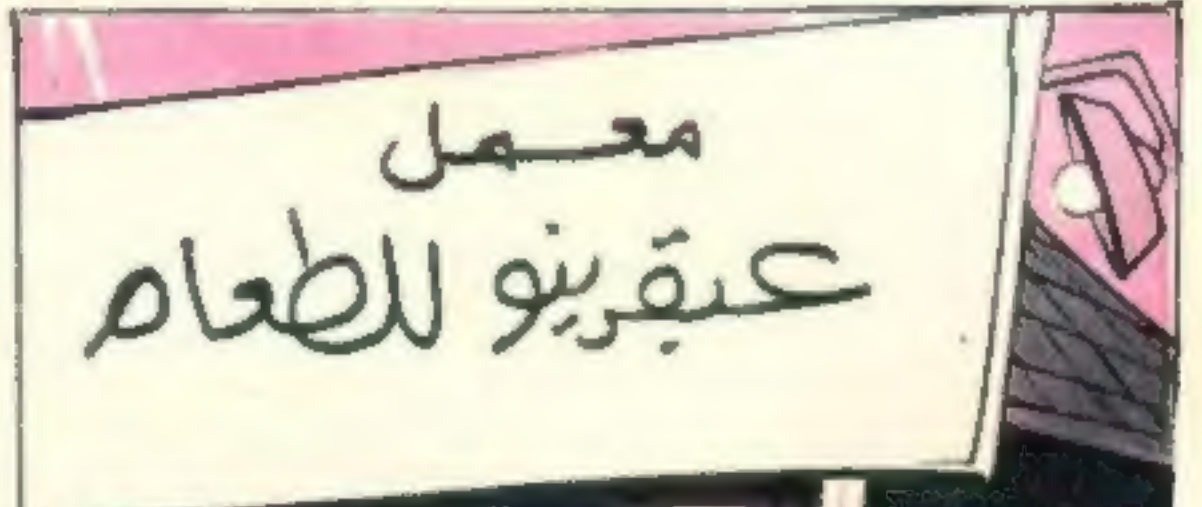 معمل
عبقرينو للطعام